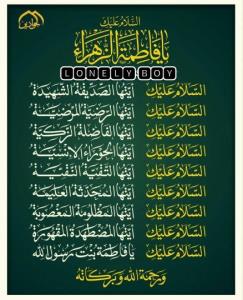 السلام عليك
يا فاطمة الزهراء
LONELY BOY
السلام عليك أيتها الصديقة الشهيدة
السلام عليك أيتها الرضية المرضية
السلام عليك أيتها الفاضلة الزكية
السلام عليك أيتها الحوراء الانسية
السلام عليك أيتها التقية النقية
السلام عليك أيتها المحدثة العليمة
السلام عليك أيتها المظلومة المغصوبة
السلام عليك أيتها المضطهدة المقهورة
السلام عليك يا فاطمة بنت رسول الله
ورحمة الله وبركاته